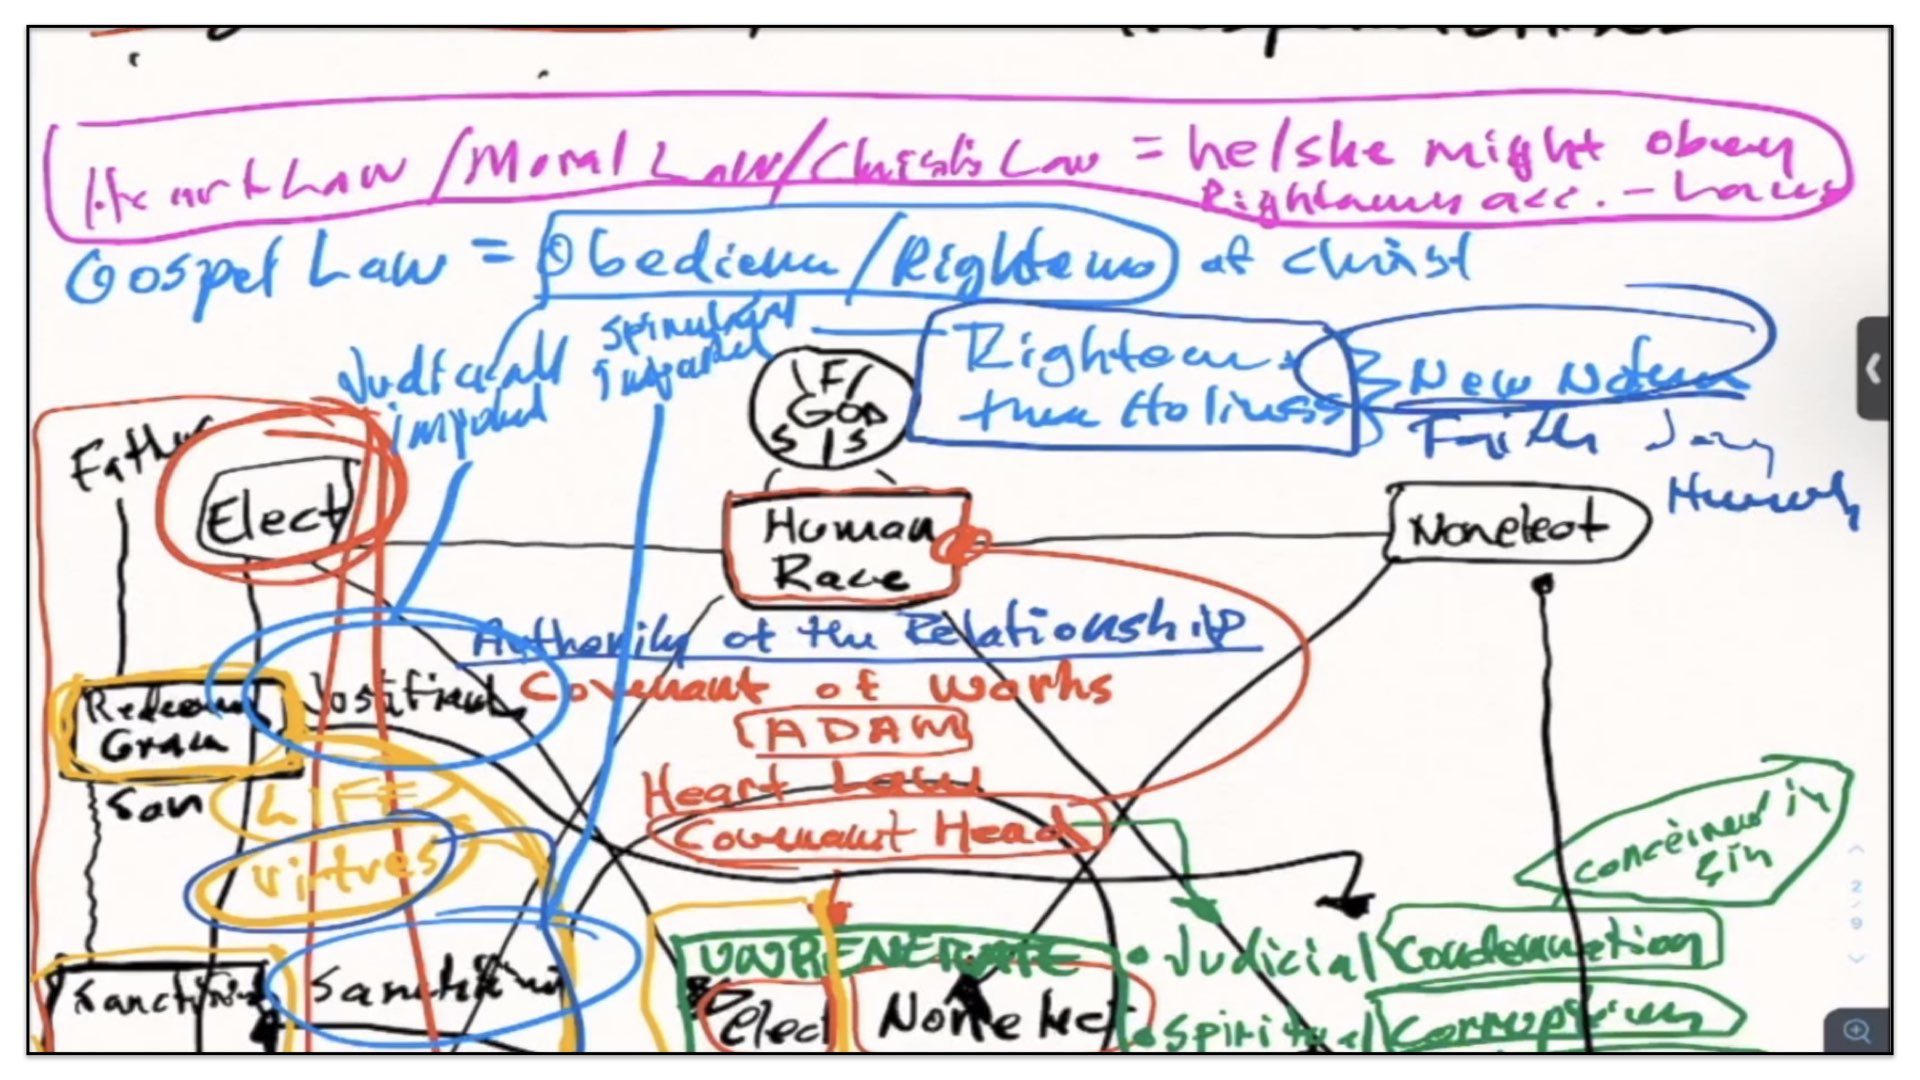 Heart Law / Moral Law / Christ's Law = he/she might obey
Gospel Law = Obedience / Righteous of Christ
Judicially
imputed
spiritually
imparted
Righteous +
true Holiness
New Nature
Faith
F
GOD
S S
Father
Elect
Human
Race
Nonelect
Authority of the Relationship
Redeeming
Grace
Justified
Covenant of Works
ADAM
Heart Law
Covenant Head
Son
LIFE
Virtues
conceived in
sin
UNREGENERATE
• Judicial Condemnation
Elect
Nonelect
• spiritual Corruption
2/9